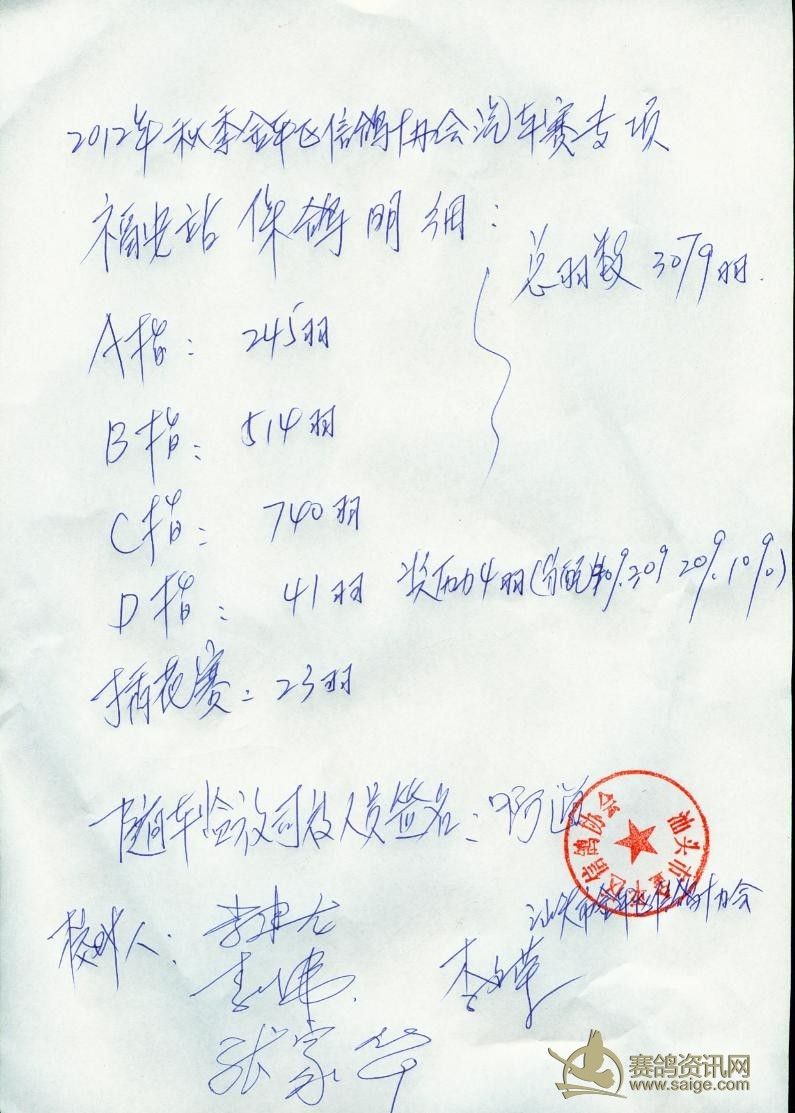 2012年秋季金平区信鸽协会汽车赛专项
福安站 集鸽明细:
总羽数 3079羽.
A指: 245羽
B指: 514羽
C指: 740羽
D指: 41羽 奖励4羽(分配40% 30% 20% 10%)
插花赛: 23羽
随车监放司放人员签名:
汕头市金平区信鸽协会
汕头市金平区信鸽协会
校对人: 李建
李伟
张家华
赛鸽资讯网
www.saige.com